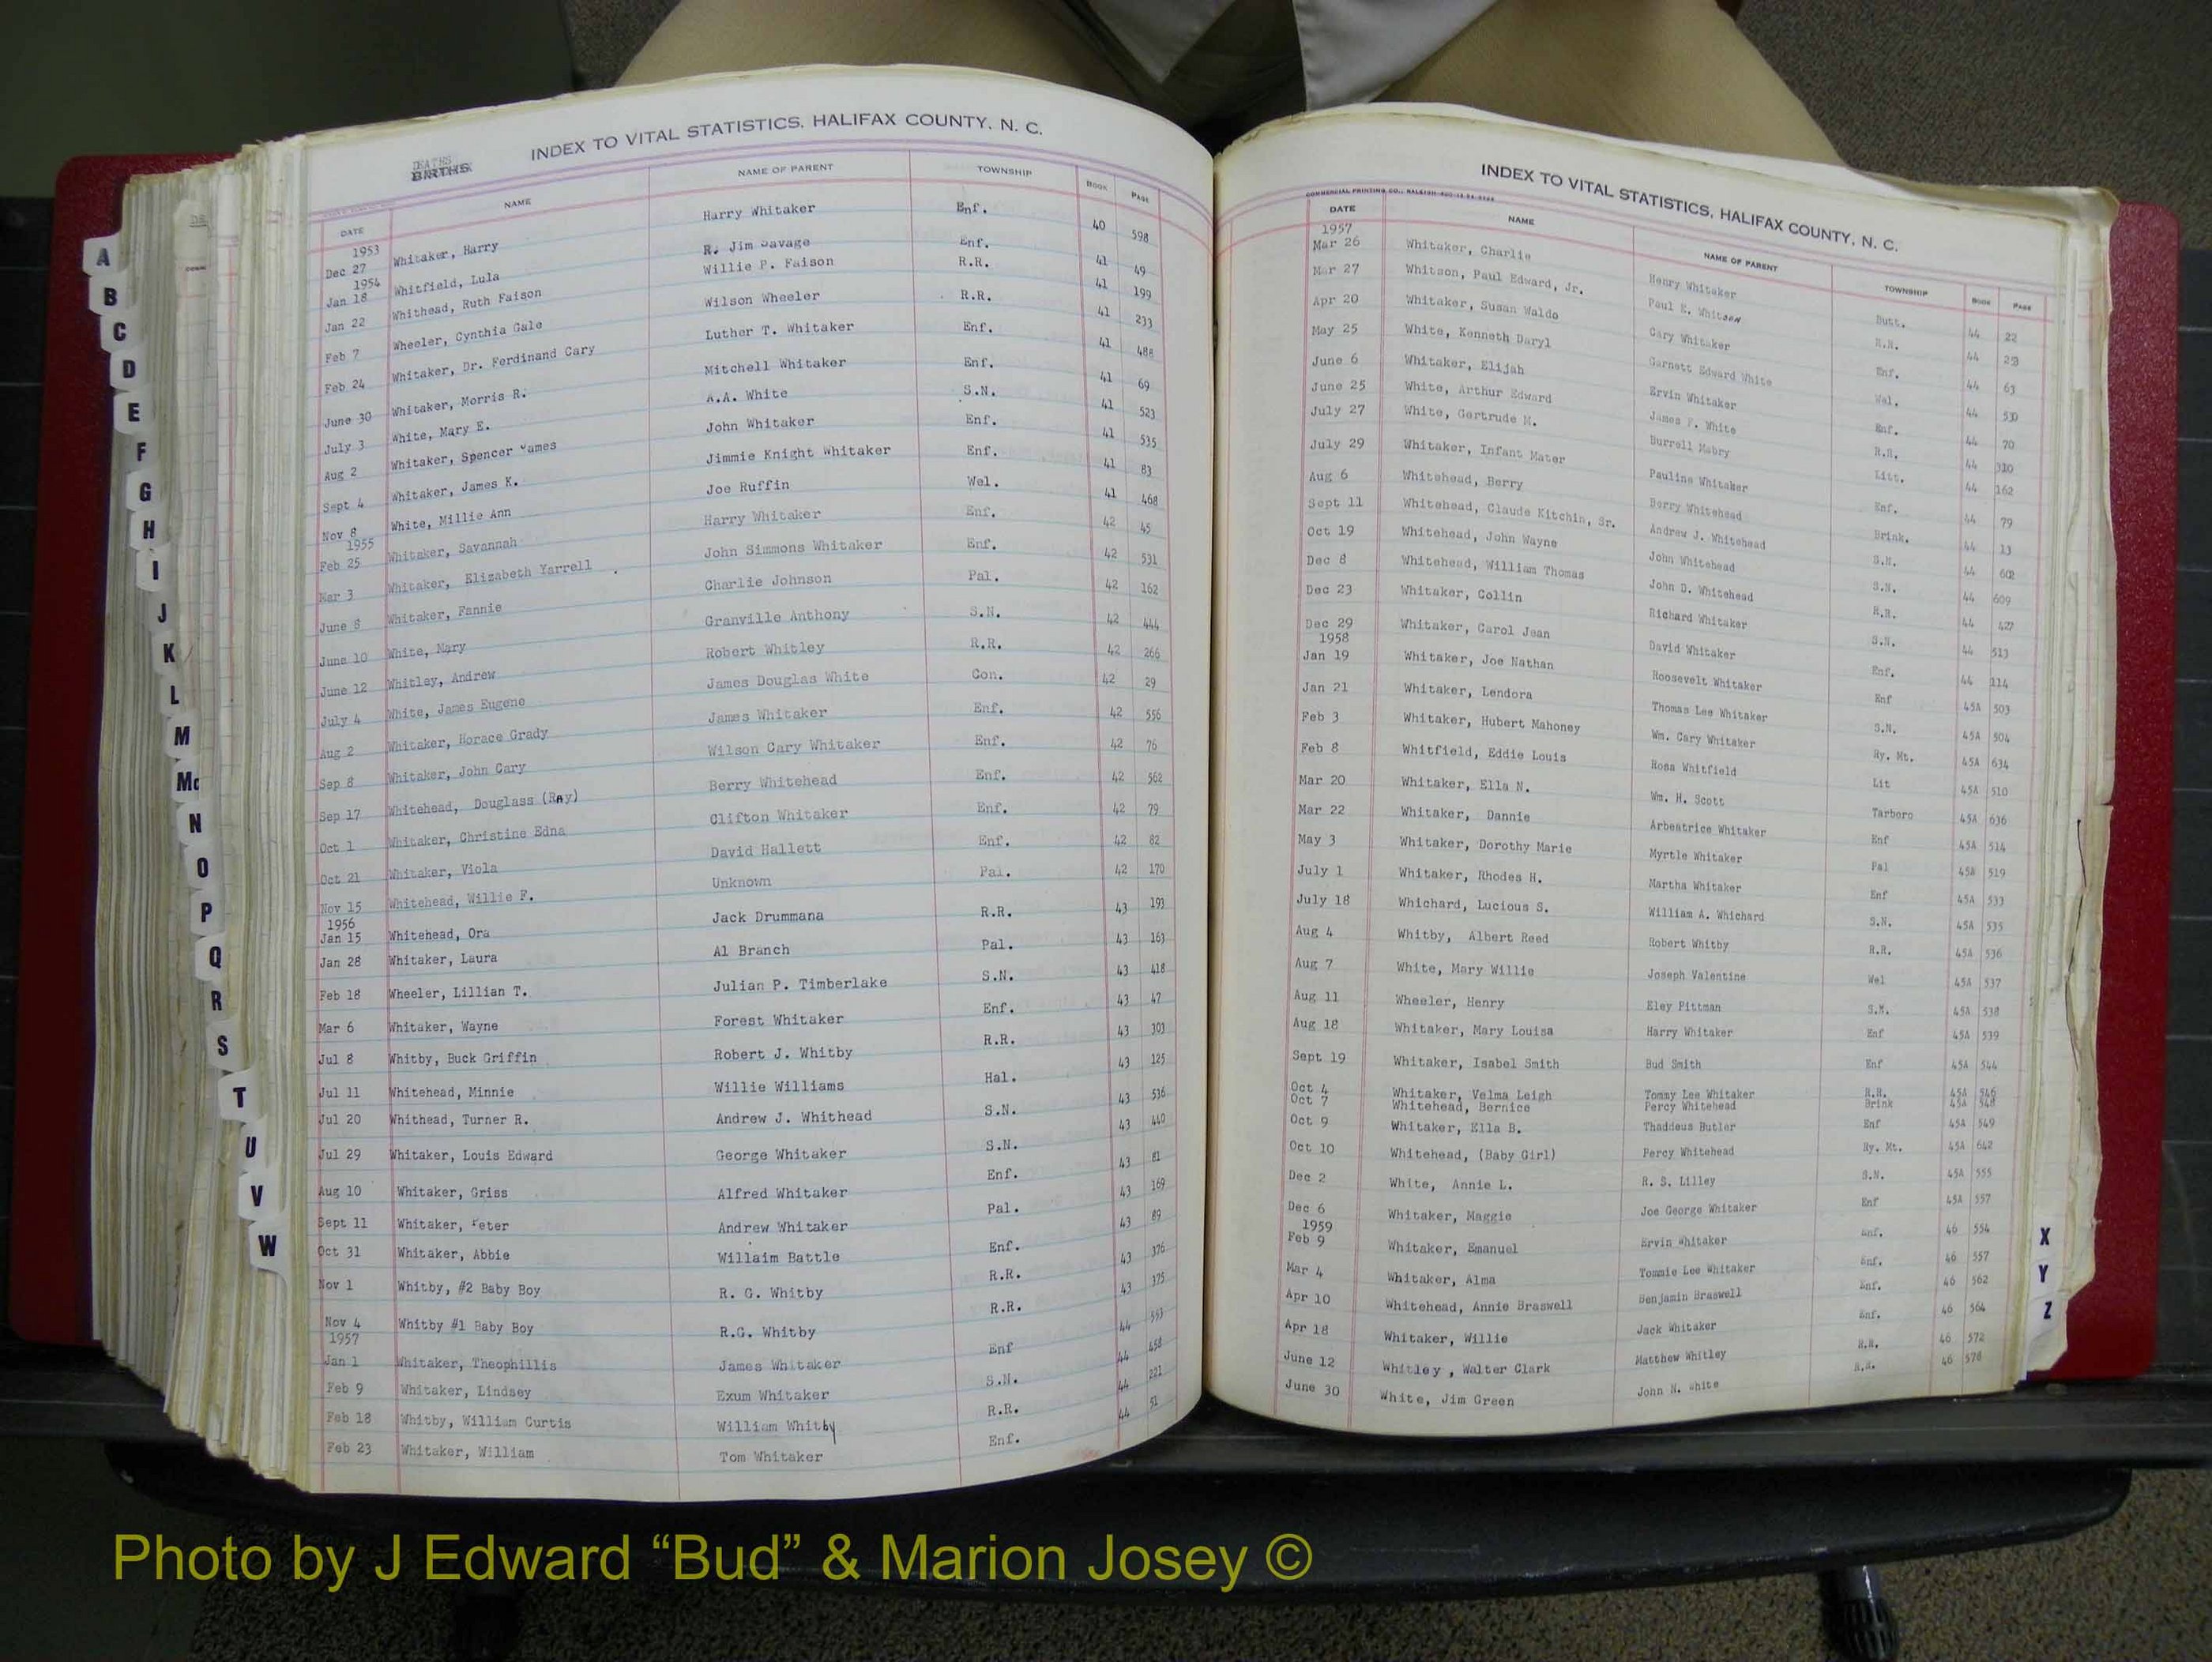 DEATHS
BIRTHS
INDEX TO VITAL STATISTICS, HALIFAX COUNTY, N. C.
DATE NAME NAME OF PARENT TOWNSHIP BOOK PAGE
1953
Dec 27 Whitaker, Harry Harry Whitaker Enf. 40 598
1954
Jan 18 Whitfield, Lula R. Jim Savage Enf. 41 49
Jan 22 Whithead, Ruth Faison Willie P. Faison R.R. 41 199
Feb 7 Wheeler, Cynthia Gale Wilson Wheeler R.R. 41 233
Feb 24 Whitaker, Dr. Ferdinand Cary Luther T. Whitaker Enf. 41 488
June 30 Whitaker, Morris R. Mitchell Whitaker Enf. 41 69
July 3 White, Mary E. A.A. White S.N. 41 523
Aug 2 Whitaker, Spencer James John Whitaker Enf. 41 535
Sept 4 Whitaker, James K. Jimmie Knight Whitaker Enf. 41 83
Nov 8 White, Millie Ann Joe Ruffin Wel. 41 468
1955
Feb 25 Whitaker, Savannah Harry Whitaker Enf. 42 45
Mar 3 Whitaker, Elizabeth Yarrell John Simmons Whitaker Enf. 42 531
June 8 Whitaker, Fannie Charlie Johnson Pal. 42 162
June 10 White, Mary Granville Anthony S.N. 42 444
June 12 Whitley, Andrew Robert Whitley R.R. 42 266
July 4 White, James Eugene James Douglas White Con. 42 29
Aug 2 Whitaker, Horace Grady James Whitaker Enf. 42 556
Sep 8 Whitaker, John Cary Wilson Cary Whitaker Enf. 42 76
Sep 17 Whitehead, Douglass (Ray) Berry Whitehead Enf. 42 562
Oct 1 Whitaker, Christine Edna Clifton Whitaker Enf. 42 79
Oct 21 Whitaker, Viola David Hallett Enf. 42 82
Nov 15 Whitehead, Willie F. Unknown Pal. 42 170
1956
Jan 15 Whitehead, Ora Jack Drummana R.R. 43 193
Jan 28 Whitaker, Laura Al Branch Pal. 43 163
Feb 18 Wheeler, Lillian T. Julian P. Timberlake S.N. 43 418
Mar 6 Whitaker, Wayne Forest Whitaker Enf. 43 47
Jul 8 Whitby, Buck Griffin Robert J. Whitby R.R. 43 303
Jul 11 Whitehead, Minnie Willie Williams Hal. 43 125
Jul 20 Whithead, Turner R. Andrew J. Whithead S.N. 43 536
Jul 29 Whitaker, Louis Edward George Whitaker S.N. 43 440
Aug 10 Whitaker, Griss Alfred Whitaker Enf. 43 81
Sept 11 Whitaker, Peter Andrew Whitaker Pal. 43 169
Oct 31 Whitaker, Abbie Willaim Battle Enf. 43 89
Nov 1 Whitby, #2 Baby Boy R. G. Whitby R.R. 43 376
Nov 4 Whitby #1 Baby Boy R.G. Whitby R.R. 43 375
1957
Jan 1 Whitaker, Theophillis James Whitaker Enf 44
Feb 9 Whitaker, Lindsey Exum Whitaker S.N. 44 458
Feb 18 Whitby, William Curtis William Whitby R.R. 44 221
Feb 23 Whitaker, William Tom Whitaker Enf. 44 51
A
B
C
D
E
F
G
H
I
J
K
L
M
Mc
N
O
P
Q
R
S
T
U
V
W
INDEX TO VITAL STATISTICS, HALIFAX COUNTY, N. C.
DATE NAME NAME OF PARENT TOWNSHIP BOOK PAGE
1957
Mar 26 Whitaker, Charlie Henry Whitaker Butt. 44 22
Mar 27 Whitson, Paul Edward, Jr. Paul E. Whitson R.R. 44
Apr 20 Whitaker, Susan Waldo Cary Whitaker Enf. 44 63
May 25 White, Kenneth Daryl Garnett Edward White Wel. 44 530
June 6 Whitaker, Elijah Ervin Whitaker Enf. 44 70
June 25 White, Arthur Edward James F. White R.R. 44 310
July 27 White, Gertrude M. Burrell Mabry Litt. 44 162
July 29 Whitaker, Infant Mater Pauline Whitaker Enf. 44 79
Aug 6 Whitehead, Berry Berry Whitehead Brink. 44 13
Sept 11 Whitehead, Claude Kitchin, Sr. Andrew J. Whitehead S.N. 44 602
Oct 19 Whitehead, John Wayne John Whitehead S.N. 44 609
Dec 8 Whitehead, William Thomas John D. Whitehead R.R. 44 427
Dec 23 Whitaker, Collin Richard Whitaker S.N. 44 513
Dec 29 Whitaker, Carol Jean David Whitaker Enf. 44 114
1958
Jan 19 Whitaker, Joe Nathan Roosevelt Whitaker Enf 45A 503
Jan 21 Whitaker, Lendora Thomas Lee Whitaker S.N. 45A 504
Feb 3 Whitaker, Hubert Mahoney Wm. Cary Whitaker Ry. Mt. 45A 634
Feb 8 Whitfield, Eddie Louis Rosa Whitfield Lit 45A 510
Mar 20 Whitaker, Ella N. Wm. H. Scott Tarboro 45A 636
Mar 22 Whitaker, Dannie Arbeatrice Whitaker Enf 45A 514
May 3 Whitaker, Dorothy Marie Myrtle Whitaker Pal 45A 519
July 1 Whitaker, Rhodes H. Martha Whitaker Enf 45A 533
July 18 Whichard, Lucious S. William A. Whichard S.N. 45A 535
Aug 4 Whitby, Albert Reed Robert Whitby R.R. 45A 536
Aug 7 White, Mary Willie Joseph Valentine Wel 45A 537
Aug 11 Wheeler, Henry Eley Pittman S.N. 45A 538
Aug 18 Whitaker, Mary Louisa Harry Whitaker Enf 45A 539
Sept 19 Whitaker, Isabel Smith Bud Smith Enf 45A 544
Oct 4 Whitaker, Velma Leigh Tommy Lee Whitaker R.R. 45A 546
Oct 7 Whitehead, Bernice Percy Whitehead Brink 45A 548
Oct 9 Whitaker, Ella B. Thaddeus Butler Enf 45A 549
Oct 10 Whitehead, (Baby Girl) Percy Whitehead Ry. Mt. 45A 642
Dec 2 White, Annie L. R. S. Lilley S.N. 45A 555
Dec 6 Whitaker, Maggie Joe George Whitaker Enf 45A 557
1959
Feb 9 Whitaker, Emanuel Ervin Whitaker Enf. 46 554
Mar 4 Whitaker, Alma Tommie Lee Whitaker Enf. 46 557
Apr 10 Whitehead, Annie Braswell Benjamin Braswell Enf. 46 562
Apr 18 Whitaker, Willie Jack Whitaker Enf. 46 564
June 12 Whitley , Walter Clark Matthew Whitley R.R. 46 572
June 30 White, Jim Green John N. White R.R. 46 578
X
Y
Z
Photo by J Edward “Bud” & Marion Josey ©